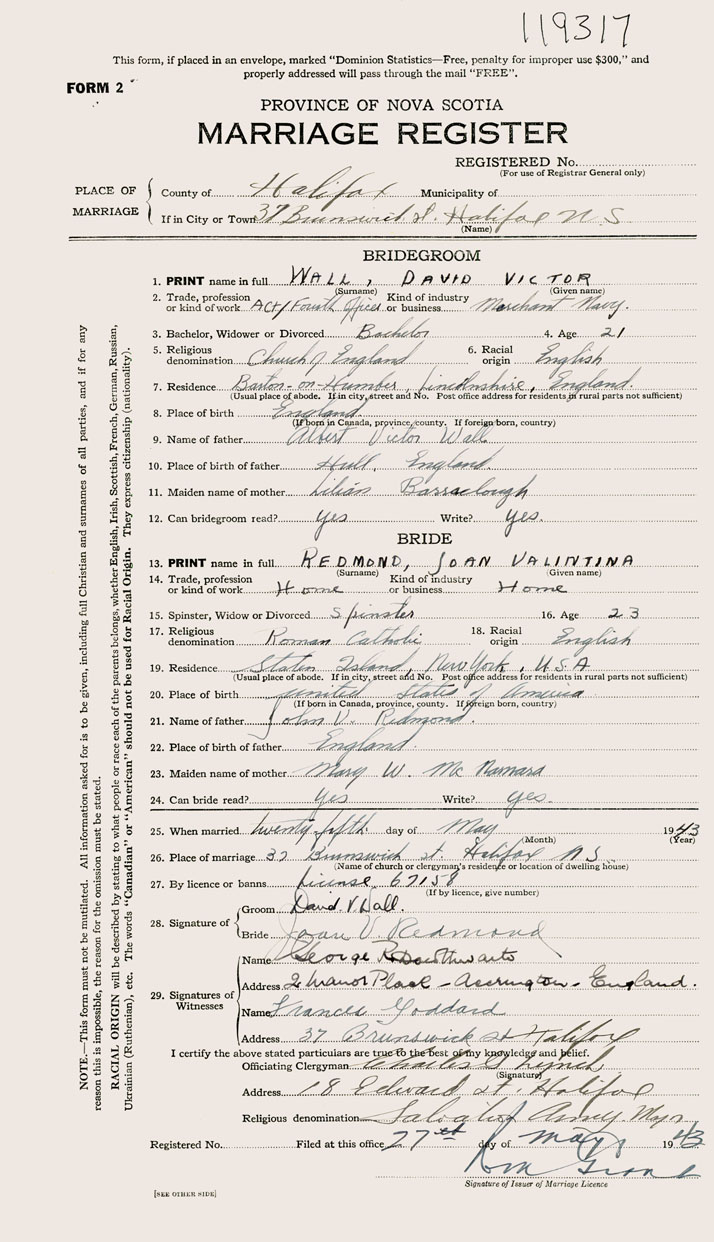 119317
This form, if placed in an envelope, marked "Dominion Statistics—Free, penalty for improper use $300," and
properly addressed will pass through the mail "FREE".
FORM 2
PROVINCE OF NOVA SCOTIA
MARRIAGE REGISTER
REGISTERED No.
(For use of Registrar General only)
PLACE OF MARRIAGE
County of Halifax Municipality of
If in City or Town 37 Brunswick St. Halifax N S
(Name)
BRIDEGROOM
1. PRINT name in full WALL, DAVID VICTOR
(Surname) (Given name)
2. Trade, profession or kind of work Act/Fourth Officer Kind of industry or business Merchant Navy.
3. Bachelor, Widower or Divorced Bachelor 4. Age 21
5. Religious denomination Church of England 6. Racial origin English
7. Residence Barton-on-Humber, Lincolnshire, England.
(Usual place of abode. If in city, street and No. Post office address for residents in rural parts not sufficient)
8. Place of birth England
(If born in Canada, province, county. If foreign born, country)
9. Name of father Albert Victor Wall
10. Place of birth of father Hull, England
11. Maiden name of mother Lilian Barraclough
12. Can bridegroom read? Yes Write? Yes.
BRIDE
13. PRINT name in full REDMOND, JOAN VALINTINA
(Surname) (Given name)
14. Trade, profession or kind of work Home Kind of industry or business Home
15. Spinster, Widow or Divorced Spinster 16. Age 23
17. Religious denomination Roman Catholic 18. Racial origin English
19. Residence Staten Island, New York, U.S.A
(Usual place of abode. If in city, street and No. Post office address for residents in rural parts not sufficient)
20. Place of birth United States of America
(If born in Canada, province, county. If foreign born, country)
21. Name of father John V. Redmond.
22. Place of birth of father England.
23. Maiden name of mother Mary W. McNamara
24. Can bride read? Yes Write? Yes.
25. When married twenty-fifth day of May 1943
(Month) (Year)
26. Place of marriage 37 Brunswick st. Halifax N S
(Name of church or clergyman's residence or location of dwelling house)
27. By licence or banns License 67158
(If by licence, give number)
28. Signature of
Groom David V Wall.
Bride Joan V. Redmond
29. Signatures of Witnesses
Name George
Address 2 Manor Place - Accrington - England.
Name Frances Goddard
Address 37 Brunswick st Halifax
I certify the above stated particulars are true to the best of my knowledge and belief.
Officiating Clergyman Charles Lynch
(Signature)
Address 18 Edward st Halifax
Religious denomination Salvation Army Major
Registered No. Filed at this office 27th day of May 1943
Signature of Issuer of Marriage Licence
[SEE OTHER SIDE]
NOTE.—This form must not be mutilated. All information asked for is to be given, including full Christian and surnames of all parties, and if for any
reason this is impossible, the reason for the omission must be stated.
RACIAL ORIGIN will be described by stating to what people or race each of the parents belongs, whether English, Irish, Scottish, French, German, Russian,
Ukrainian (Ruthenian), etc. The words "Canadian" or "American" should not be used for Racial Origin. They express citizenship (nationality).